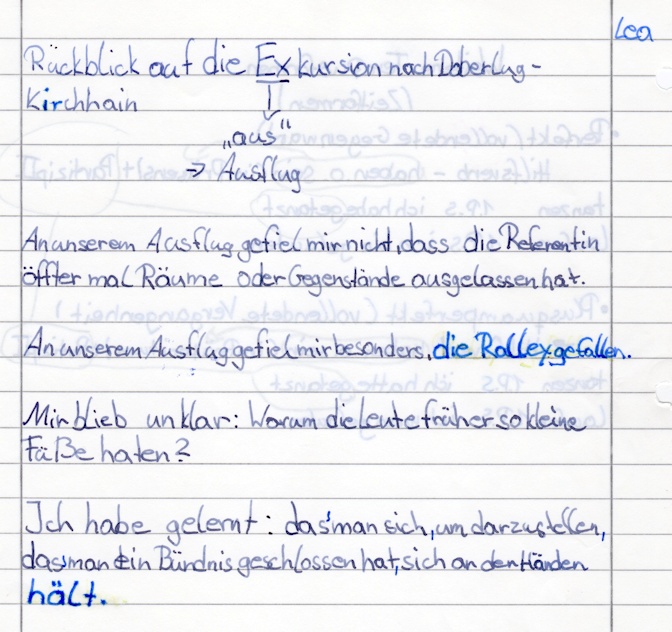 Lea
Rückblick auf die Exkursion nach Doberlug-
Kirchhain
„aus“
→ Ausflug
An unserem Ausflug gefiel mir nicht, dass die Referentin
öffter mal Räume oder Gegenstände ausgelassen hat.
An unserem Ausflug gefiel mir besonders, die Rolley gefallen.
Mir blieb unklar: Warum die Leute früher so kleine
Fäße haten?
Ich habe gelernt: das man sich, um darzustellen,
das man ein Bündnis geschlossen hat, sich an den Händen
hält.